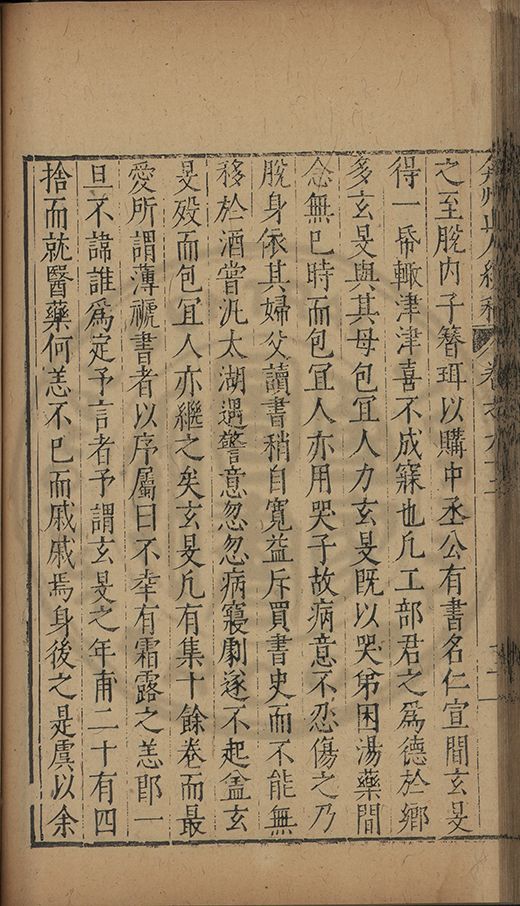 弇州山人續稿 卷之
之至脫內子簪珥以購中丞公有書名仁宣間玄旻
得一帋輙津津喜不成寐也凡工部君之爲德於鄉
多玄旻與其母包宜人力玄旻旣以哭弟困湯藥間
念無已時而包宜人亦用哭子故病意不忍傷之乃
脫身依其婦父讀書稍自寬益斥買書史而不能無
移於酒嘗汎太湖遇警意忽忽病寢劇遂不起盖玄
旻歿而包宜人亦繼之矣玄旻凡有集十餘卷而最
愛所謂薄褫書者以序屬曰不幸有霜露之恙卽一
旦不諱誰爲定予言者予謂玄旻之年甫二十有四
捨而就醫藥何恙不已而戚戚焉身後之是虞以余